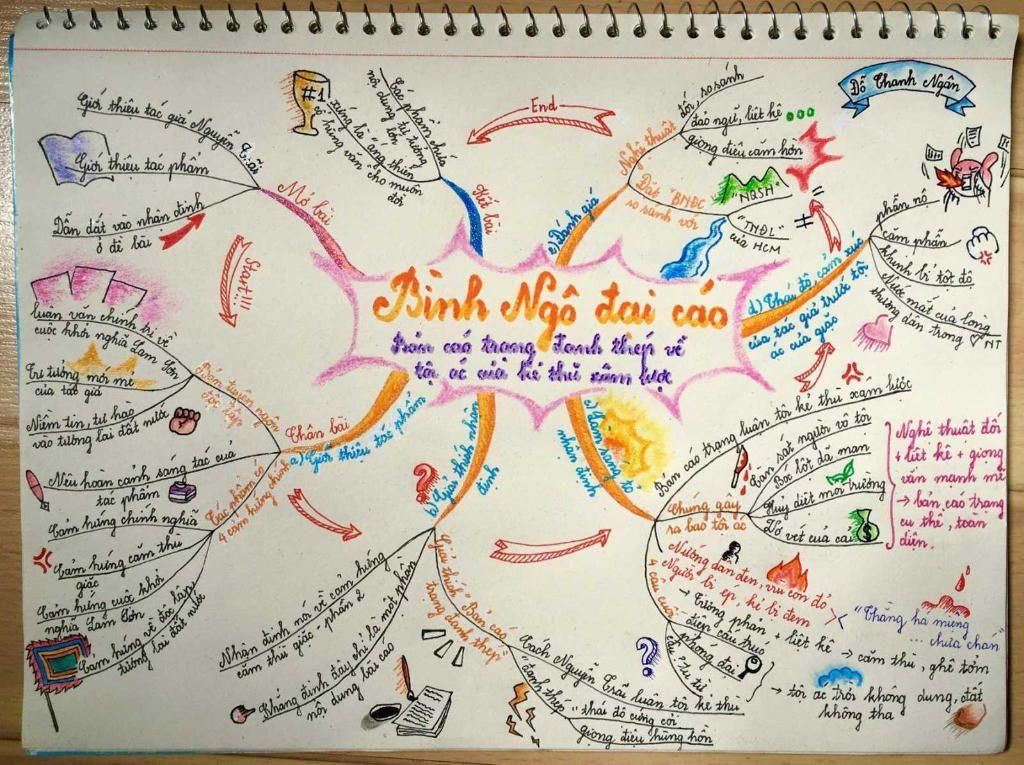 Bình Ngô đại cáo
Bản cáo trạng đanh thép về
tội ác của kẻ thù xâm lược
Đỗ Thanh Ngân
Start!!!
Mở bài
Giới thiệu tác giả Nguyễn Trãi
Giới thiệu tác phẩm
Dẫn dắt vào nhận định
ở đề bài
Thân bài
a) Giới thiệu tác phẩm
Bản tuyên ngôn
độc lập
luận văn chính trị về
cuộc khởi nghĩa Lam Sơn
Tư tưởng mới mẻ
của tác giả
Niềm tin, tự hào
vào tương lai đất nước
Nêu hoàn cảnh sáng tác của
tác phẩm
Tác phẩm có
4 cảm hứng chính
Cảm hứng chính nghĩa
Cảm hứng căm thù
giặc
Cảm hứng cuộc khởi
nghĩa Lam Sơn
Cảm hứng về độc lập
tương lai đất nước
b) Giải thích nhận
định
Nhận định nói về cảm hứng
căm thù giặc, phần 2
Khẳng định đây chỉ là một phần
nội dung bài cáo
Giải thích "Bản cáo
trạng đanh thép"
Cách Nguyễn Trãi luận tội kẻ thù
"đanh thép": thái độ cứng cỏi
giọng điệu hùng hồn
c) Làm sáng tỏ
nhận định
Bản cáo trạng luận tội kẻ thù xâm lược
Chúng gây
ra bao tội ác
Tàn sát người vô tội
Bóc lột dã man
Huỷ diệt môi trường
Vơ vét của cải
Nghệ thuật đối
+ liệt kê + giọng
văn mạnh mẽ
→ bản cáo trạng
cụ thể, toàn
diện.
4 câu cuối
Nướng dân đen, vùi con đỏ
Người bị ép, kẻ bị đem
→ Tương phản + liệt kê
điệp cấu trúc
"Thằng há miệng
... chưa chán"
→ căm thù, ghê tởm
phóng đại
câu hỏi tu từ
→ tội ác trời không dung, đất
không tha
d) Thái độ, cảm xúc
của tác giả trước tội
ác của giặc
phẫn nộ
căm phẫn
khinh bỉ tột độ
Nước mắt của lòng
thương dân trong ♡ NT
e) Đánh giá
Nghệ thuật
đối, so sánh
đảo ngữ, liệt kê
giọng điệu căm hờn
Đặt "BNĐC"
so sánh với
"NQSH"
"TNĐL"
của HCM
End
Kết bài
Tác phẩm chứa
nội dung tư tưởng
lớn
xứng là áng thiên
cổ hùng văn cho muôn
đời
#1